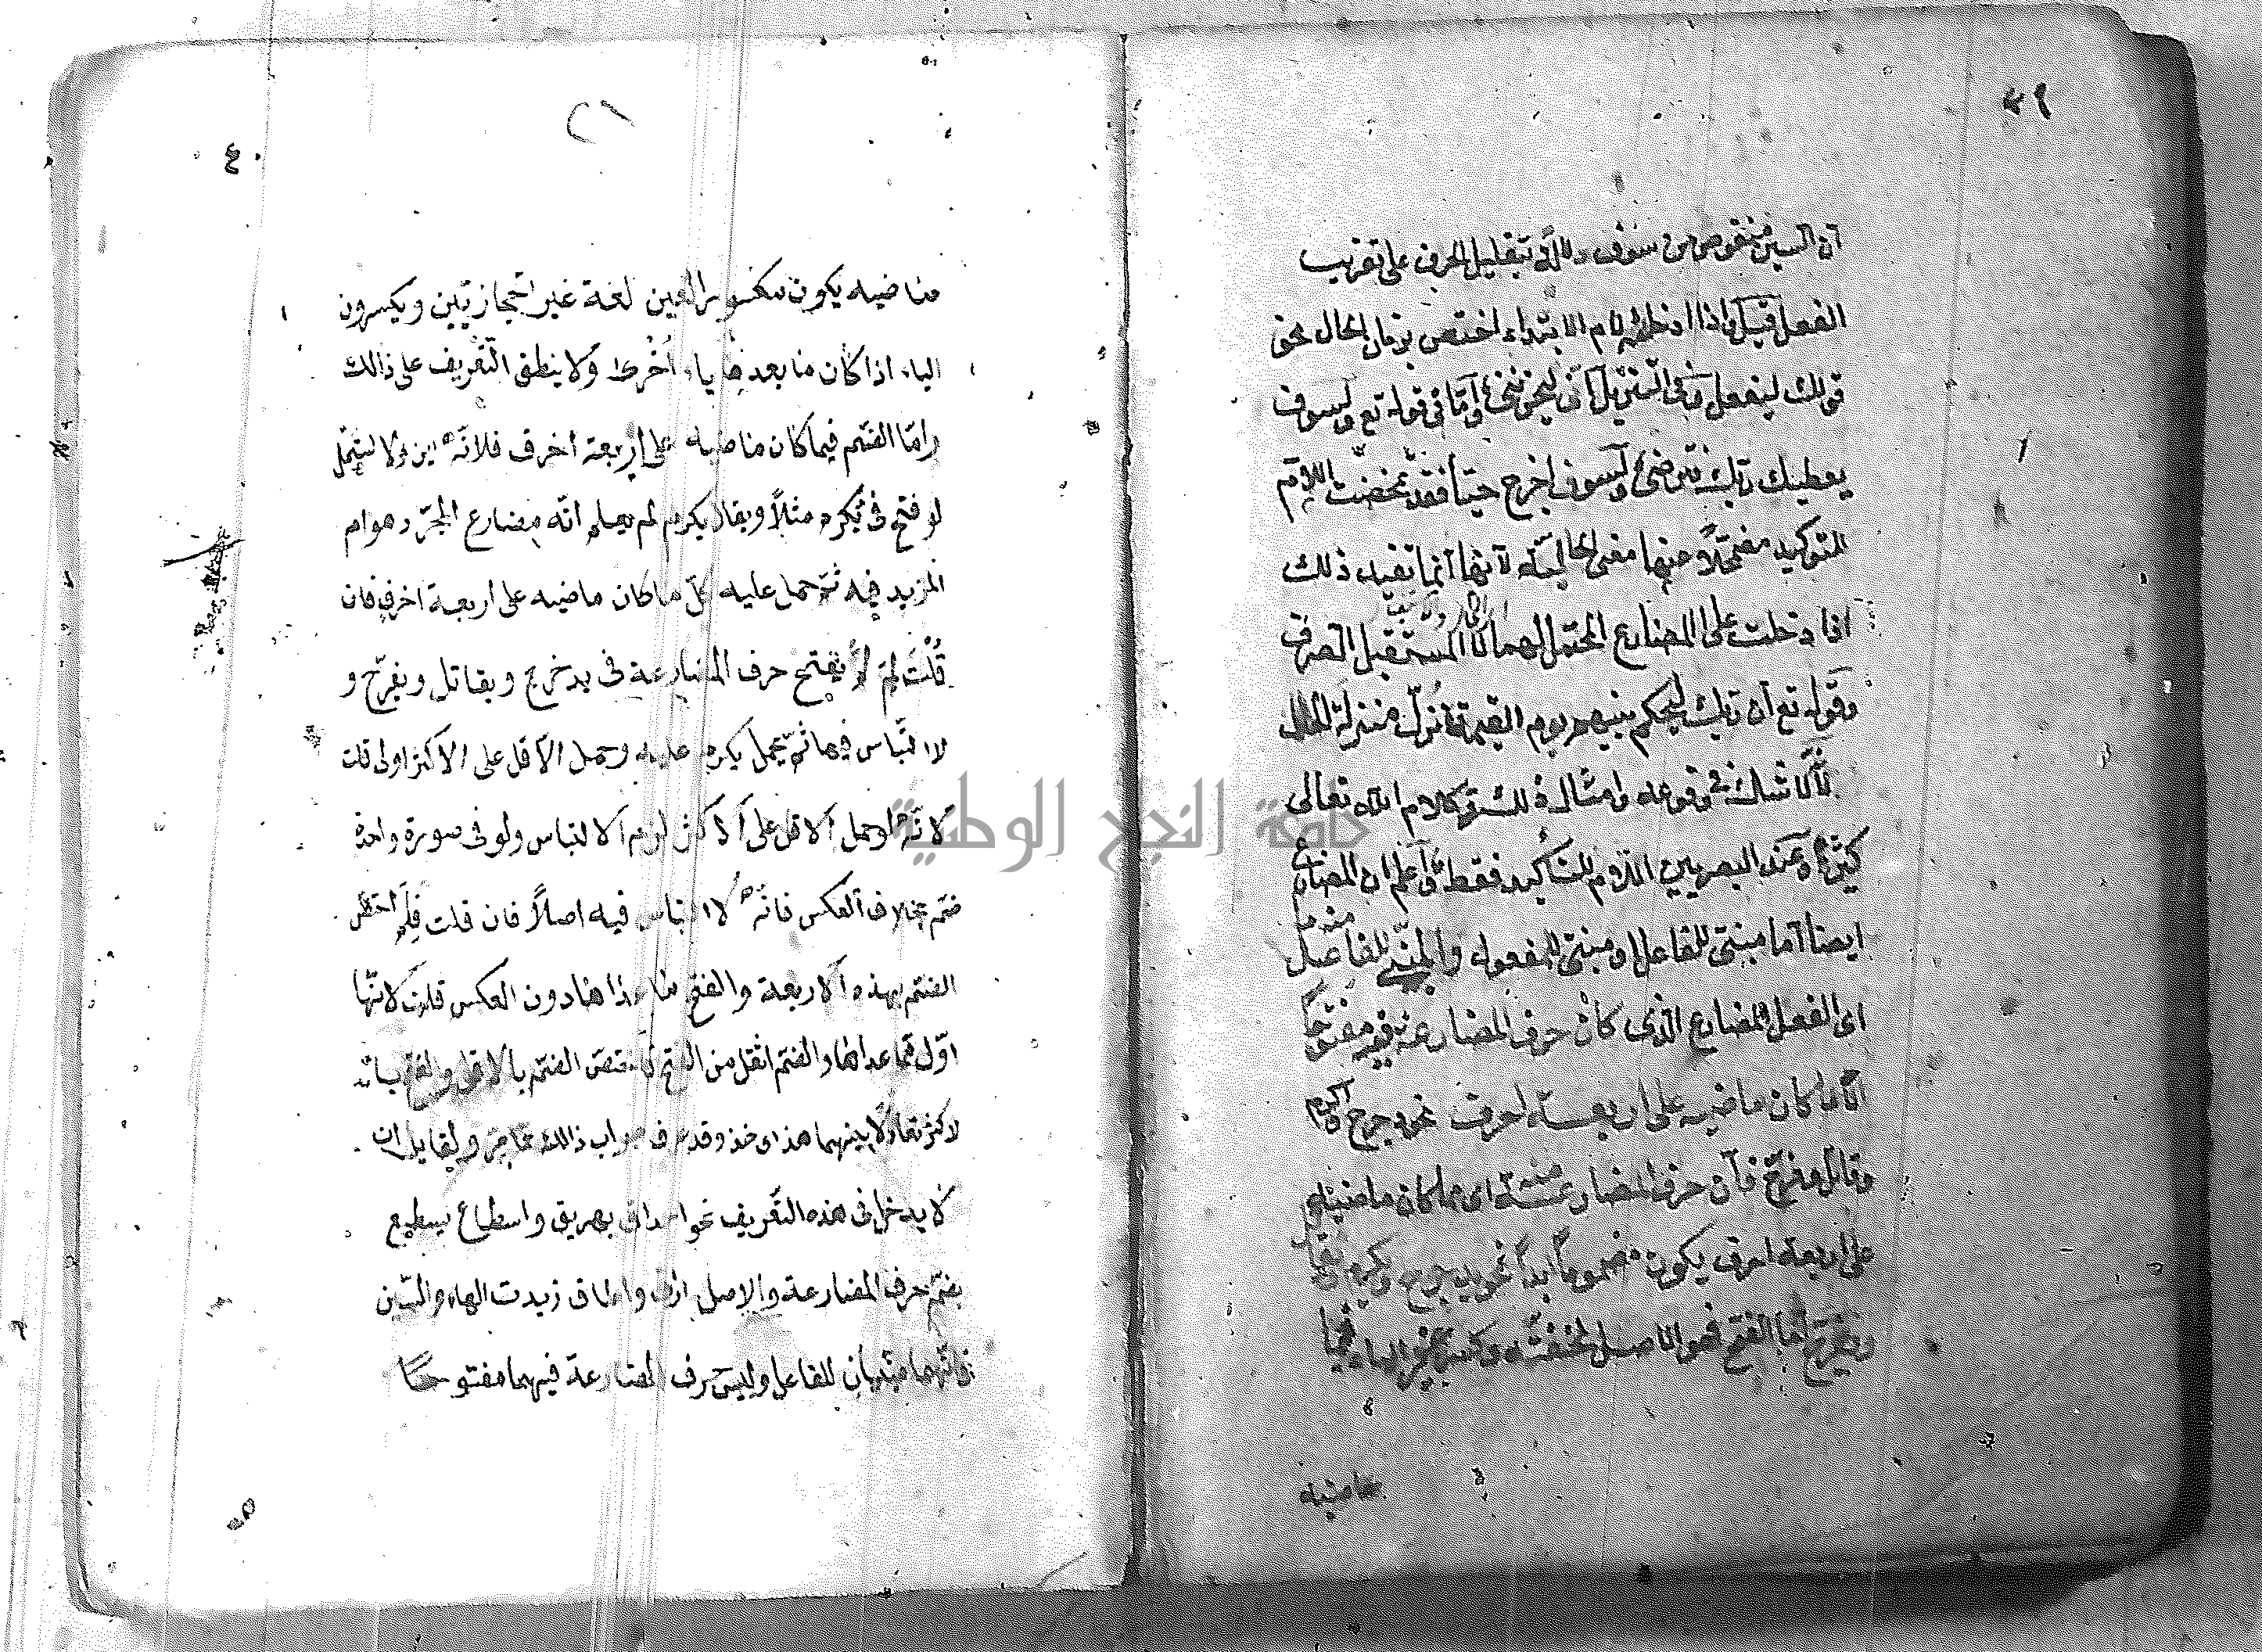 ٣٩
ان السين منقوص من سوف دلالة بتقليل الحرف على تقريب
الفعل قيل واذا ادخلته لام الابتداء اختص بزمان الحال نحو
قولك ليفعل وفى التنزيل انى ليحزننى واما فى قوله تع ولسوف
يعطيك ربك فترضى ولسوف اخرج حيا فقد تمحضت اللام
للتوكيد مضمحلا عنها معنى الحالية لانها انما تفيد ذلك
اذا دخلت على المضارع المحتمل لهما لا المستقبل الصرف
وقوله تع ان ربك ليحكم بينهم يوم القيمة نزل منزلة الحال
اذ لا شك فى وقوعه وامثال ذلك فى كلام الله تعالى
كثيرة وعند البصريين اللام للتأكيد فقط واعلم ان المضارع
ايضا اما مبنى للفاعل او مبنى للمفعول والمبنى للفاعل منه ما
اى الفعل المضارع الذى كان حرف المضارعة فيه مفتوحا
الا ما كان ماضيه على اربعة احرف نحو دحرج واكرم
وقاتل وفرح فان حرف المضارعة منه اى مما كان ماضيه
على اربعة احرف يكون مضموما ابدا نحو يدحرج ويكرم ويقاتل
ويفرح اما الفتح فهو الاصل لخفته وكسر غير الياء فيما
ماضيه
٤٠
ماضيه يكون مكسور العين لغة غير الحجازيين ويكسرون
الياء اذا كان ما بعدها ياء اخرى ولا ينطبق التعريف على ذالك
واما الضم فيما كان ماضيه على اربعة احرف فلانه
لو فتح فى يكرم مثلًا ويقال يكرم لم يعلم انه مضارع المجرد هو ام
المزيد فيه ثم حمل عليه كل ما كان ماضيه على اربعة احرف فان
قُلْتَ لِمَ لا يفتح حرف المضارعة فى يدحرج ويقاتل ويفرّح و
لا التباس فيها ثم يحمل يكرم عليه وحمل الاقل على الاكثر اولى قلت
لانه لو حمل الاقل على الاكثر لزم الالتباس ولو فى صورة واحدة
بخلاف العكس فانه لا التباس فيه اصلًا فان قلت فلم اختص
الضم بهذه الاربعة والفتح بما عداها دون العكس قلت لانها
اقل مما عداها والضم اثقل من الفتح فاختص الضم بالاقل والفتح
بالاكثر تعادلا بينهما هذا وقد عرف جواب ذالك مما مر ولقايل ان
لا يدخل فى هذه التعريف نحو اهراق يهريق واسطاع يسطيع
بضم حرف المضارعة والاصل اراق واطاع زيدت الهاء والسين
فانهما مبنيان للفاعل وليس حرف المضارعة فيهما مفتوحًا
جامعة النجاح الوطنية